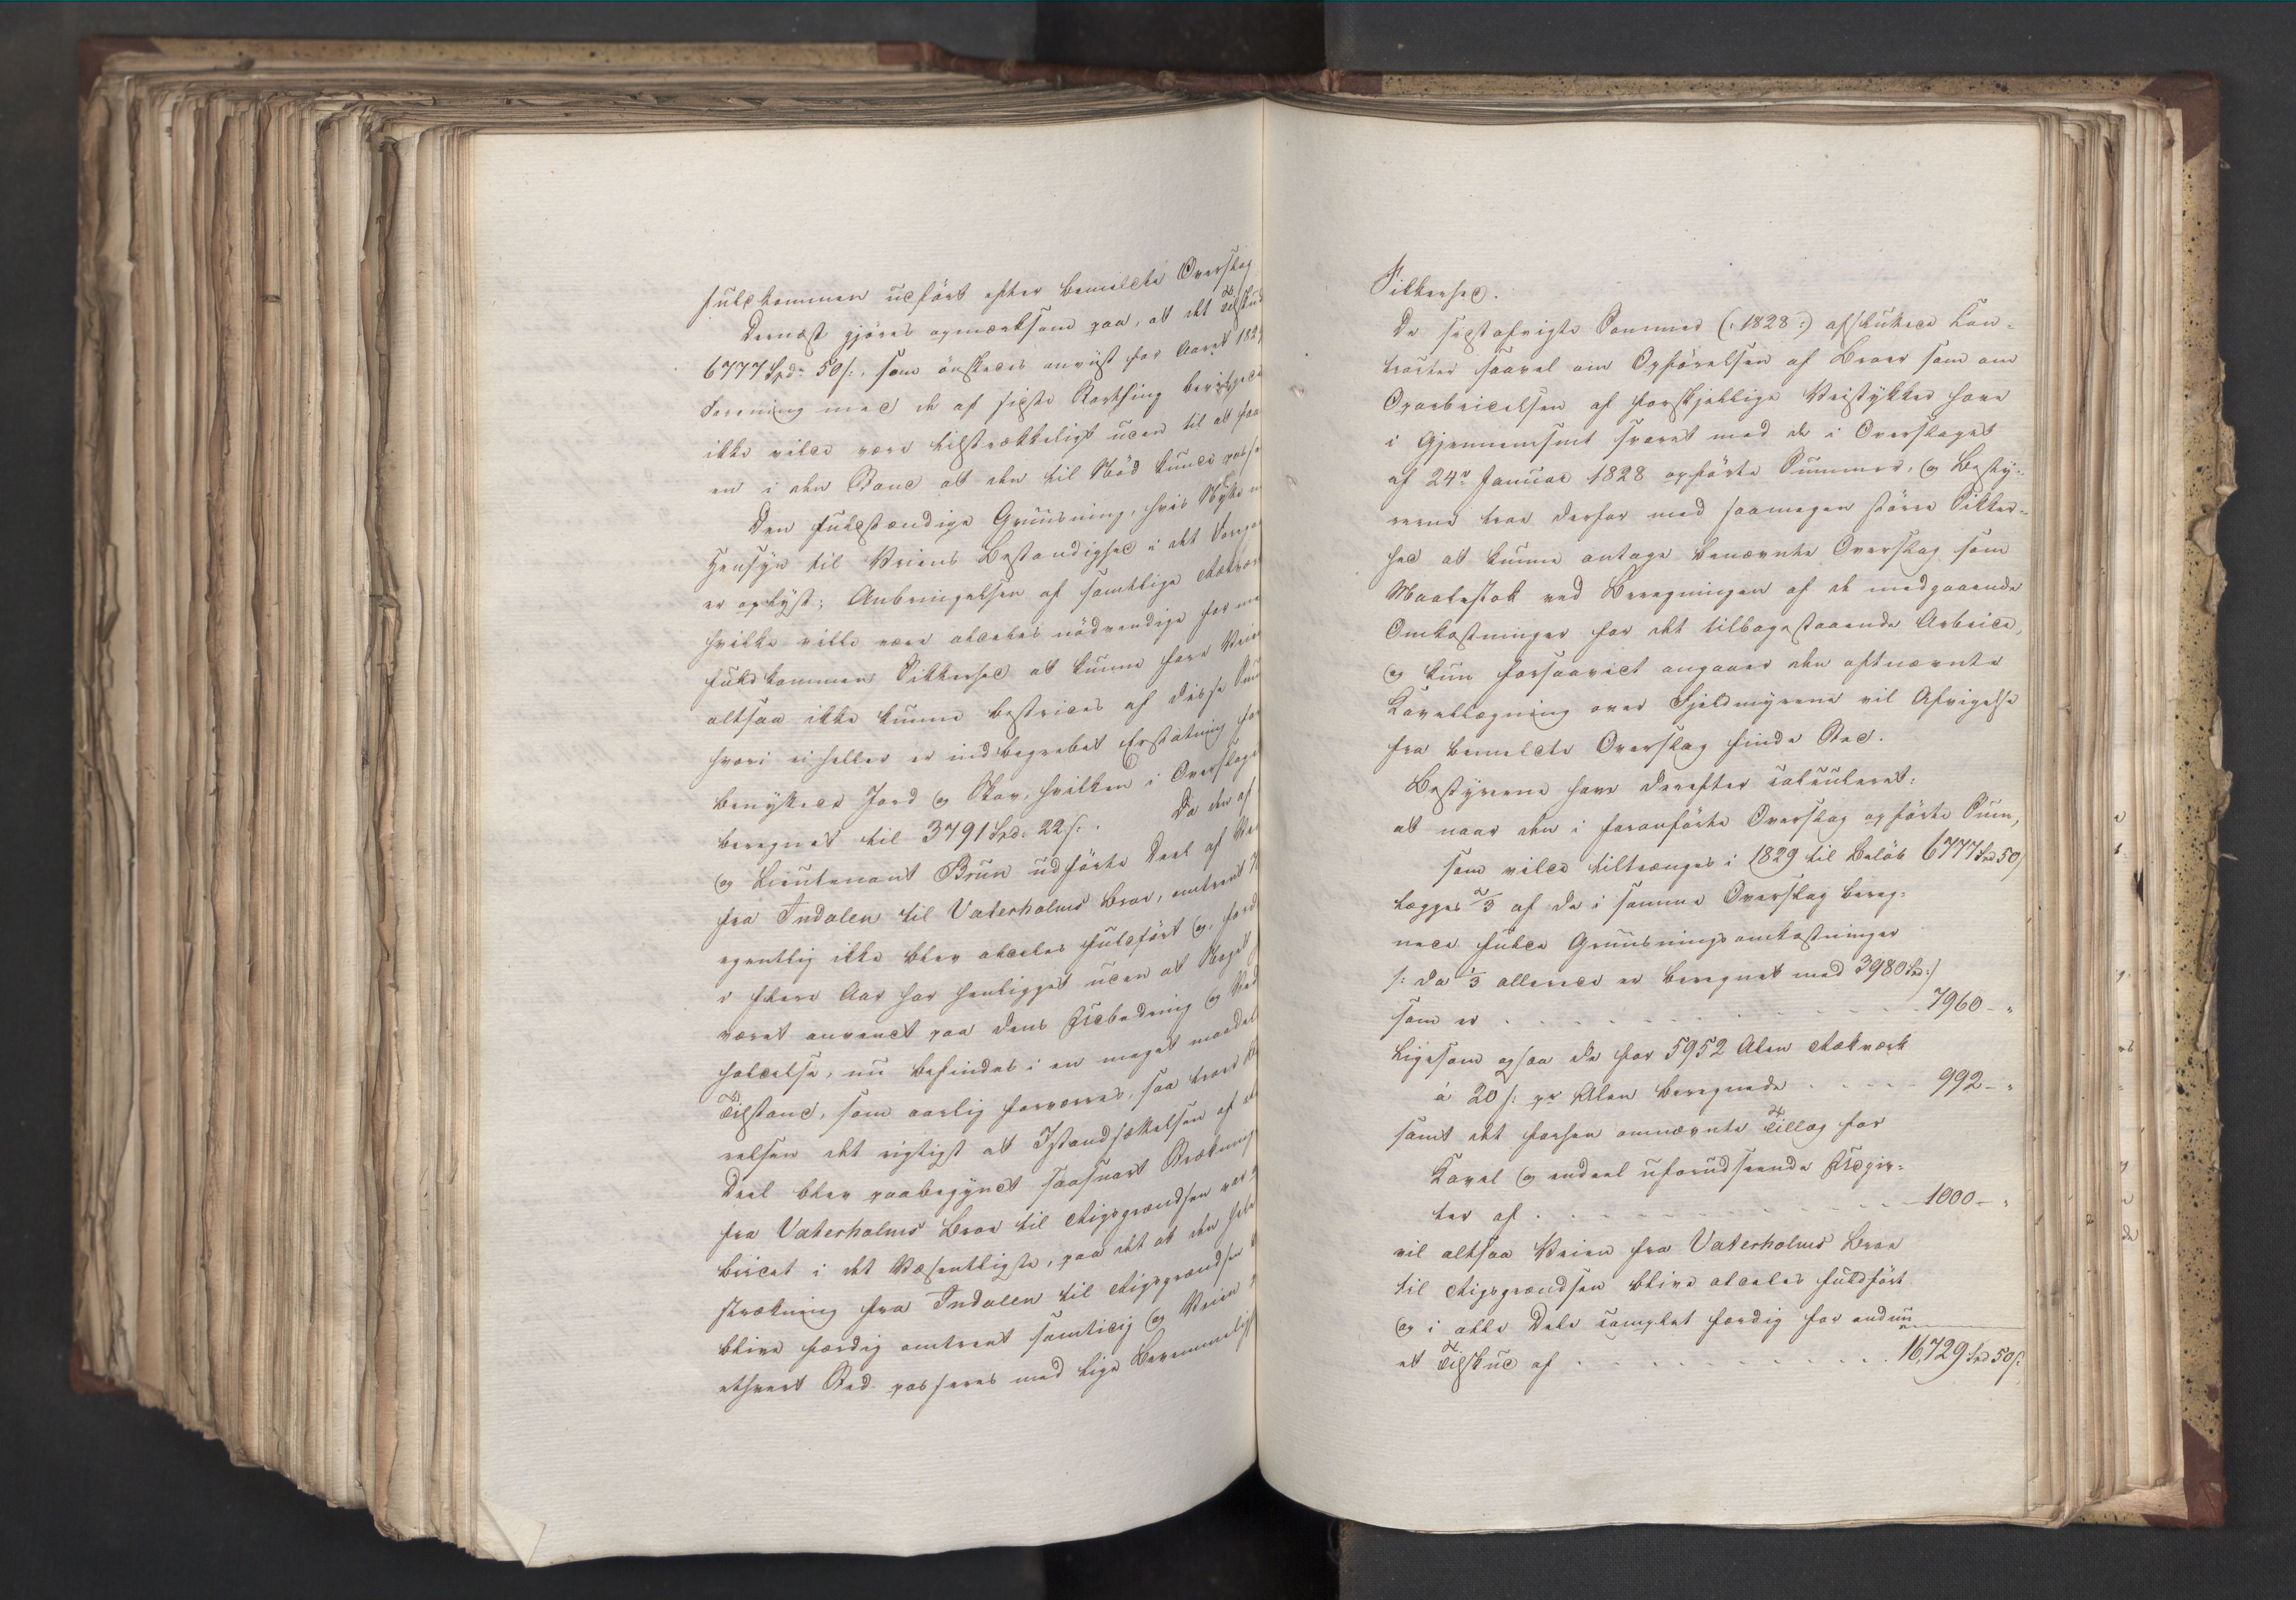 fuldkommen udført efter bemeldte Overslag
Dernæst gjøres opmærksom paa, at det Tilskud
6777 Spd. 50 s., som ønskedes anviist for Aaret 182
Forening med de af sidste Storthing bevilgede
ikke vilde være tilstrækkeligt uden til at faa
en i den Stand at den til Nød kunde passe
Den fuldstændige Gruusning, hvis Nytte
Hensyn til Veiens Bestandighed i det
er oplyst; Anbringelsen af samtlige Rækvær
hvilke ville være aldeles nødvendige for
fuldkommen Sikkerhed at kunne fare Veien
altsaa ikke kunne bestrides af disse
hvori ei heller er indbegrebet Erstatning for
benyttede Jord og Skov, hvilken i Overslaget
beregnet til 3791 Spd. 22 s. . Da den af
og Lieutenant Brun udførte Deel af Vei
fra Indalen til Vaterholms Broe, omtrent
egentlig ikke blev aldeles fuldført og, fordi
i flere Aar har henligget uden at Noget
været anvendt paa dens Udbedring og Ved
holdelse, nu befindes i en meget maadel
Tilstand, som aarlig forværres, saa troer
relsen det rigtigst at Istandsættelsen af
Deel blev paabegyndt saasnart Stræknin
fra Vaterholms Broe til Rigsgrændsen var
beidet i det Væsentligste, paa det at den hele
Strækning fra Indalen til Rigsgrændsen
blive færdig omtrent samtidig og Veien
ethvert Sted passeres med lige Beqvemmelig
Sikkerhed.
De sidstafvigte Sommer (: 1828 :) afsluttede Con-
tracter saavel om Opførelsen af Broer som om
Oparbeidelsen af forskjellige Veistykker have
i Gjennemsnit svaret med de i Overslaget
af 24de Januar 1828 opførte Summer, og Besty-
rerne troe derfor med saamegen større Sikker-
hed at kunne antage benævnte Overslag som
Maalestok ved Beregningen af de medgaaende
Omkostninger for det tilbagestaaende Arbeide,
og kun forsaavidt angaaer den oftnævnte
Kavellægning over Fjeldmyrene vil Afvigelse
fra bemeldte Overslag finde Sted.
Bestyrerne have derefter calculeret:
at naar den i foranførte Overslag opførte Sum,
som vilde tiltrænges i 1829 til Beløb 6777 Spd 50 s
lægges 2/3 af de i samme Overslag bereg-
nede fulde Gruusningsomkostninger
/: da 1/3 allerede er beregnet med 3980 Spd :/
som er . . . . . . . . . 7960 - "
Ligesom ogsaa de for 5952 Alen Rækværk
á 20 s. pr Alen beregnede . . . . . 992 - "
samt det forhen omnævnte Tillæg for
Kavel og endeel uforudseende Udgif-
ter af . . . . . . . . . 1000 - "
vil altsaa Veien fra Vaterholms Broe
til Rigsgrændsen blive aldeles fuldført
og i alle Dele complet færdig for endnu
et Tilskud af . . . . . . . . . 16,729 Spd 50 s.